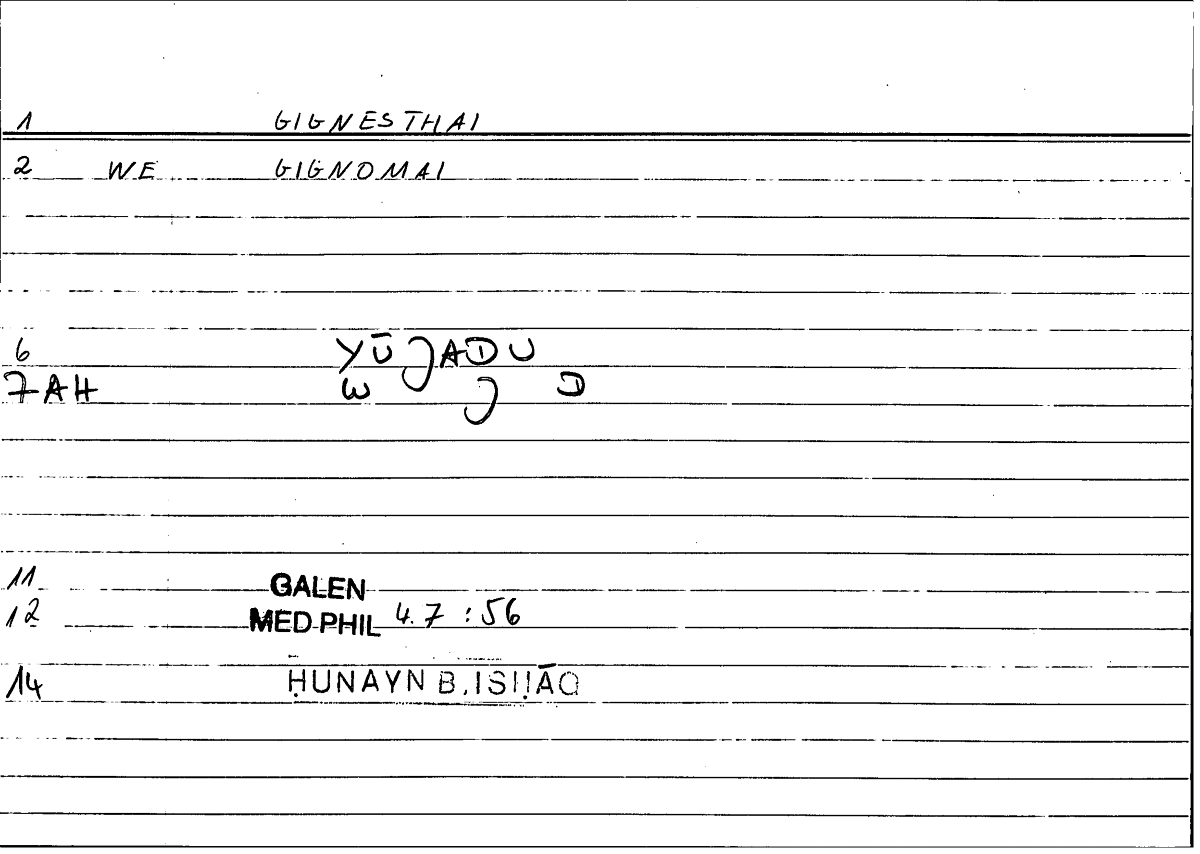 1 GIGNESTHAI
2 WE GIGNOMAI
6 YŪJADU
7AH W J D
11 GALEN
12 MED PHIL 4.7 : 56
14 ḤUNAYN B. ISḤĀQ